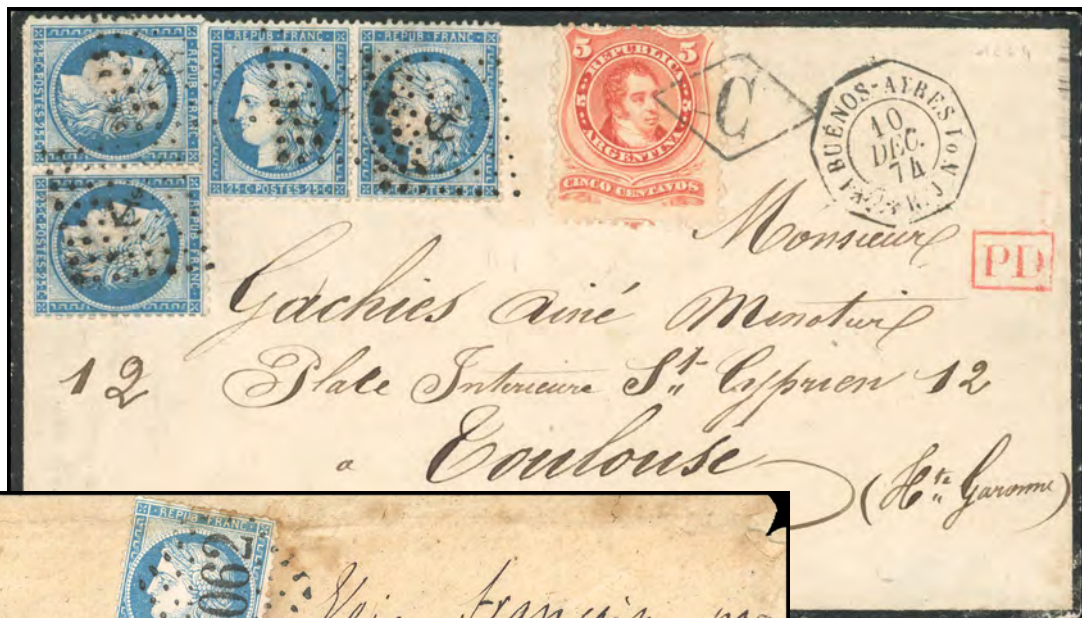 REPUB FRANC
25·C·POSTES·25·C
REPUB FRANC
25·C·POSTES·25·C
REPUB FRANC
25·C·POSTES·25·C
REPUB FRANC
5 5
REPUBLICA
ARGENTINA
CINCO CENTAVOS
C
1874
BUÉNOS-AYRES
10
DEC.
74
PD
Monsieur
Gachies ainé
12 Place Interieure St Cyprien 12
a Toulouse
(Hte Garonne)
REPUB FRANC
062